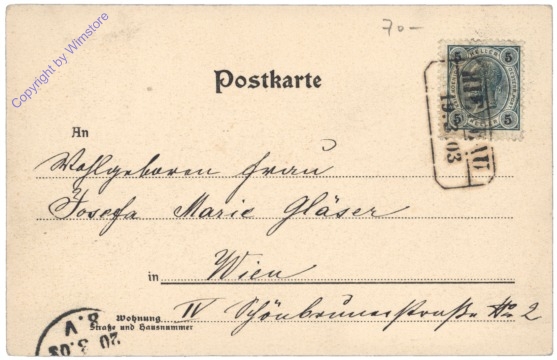 Copyright by Wimstore
70-
Postkarte
5 5
HELLER
5 5
19.3.03
An
Wohlgeboren Frau
Josefa Marie Gläser
in Wien
Wohnung
Straße und Hausnummer
IV Schönbrunerstraße No 2
20 3.03
8.V